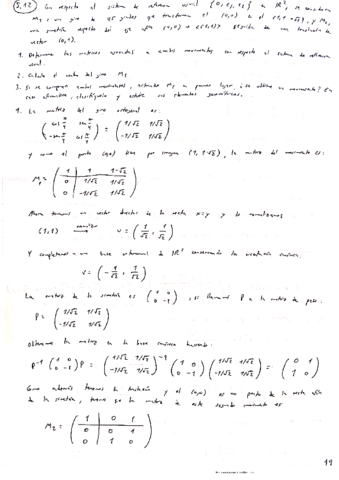 5.12) Con respecto al sistema de referencia usual {0, e₁, e₂} de ℝ², se consideran
M₁ un giro de 45 grados que transforma el (0,0) en el (1, 1-√2), y M₂
una simetría respecto del eje afín (0,0) + <(1,1)> seguida de una traslación de
vector (0,1).
1. Determina las matrices asociadas a ambos movimientos con respecto al sistema de referencia
usual.
2. Calcula el centro del giro M₁
3. Si se componen ambos movimientos, actuando M₁ en primer lugar, ¿se obtiene un movimiento? En
caso afirmativo, clasifíquelo y estudie sus elementos geométricos.
1. La matriz del giro ortogonal es:
( cos π/4 sen π/4 ) = ( 1/√2 1/√2 )
( -sen π/4 cos π/4 ) ( -1/√2 1/√2 )
Y como el punto (0,0) tiene por imagen (1, 1-√2), la matriz del movimiento es:
M₁ = ( 1 | 1 1-√2 )
( 0 | 1/√2 1/√2 )
( 0 | -1/√2 1/√2 )
Ahora tomamos un vector director de la recta x=y y lo normalizamos
(1,1) ⟶ v = (1/√2, 1/√2)
Y completamos a una base ortonormal de ℝ² conservando la orientación
v = (-1/√2, 1/√2)
La matriz de la simetría es ( 1 0 ; 0 -1 ), si llamamos P a la matriz de paso:
P = ( 1/√2 1/√2 )
( -1/√2 1/√2 )
Obtenemos la matriz en la base canónica haciendo:
P⁻¹ ( 1 0 ; 0 -1 ) P = ( 1/√2 1/√2 ; -1/√2 1/√2 )⁻¹ ( 1 0 ; 0 -1 ) ( 1/√2 1/√2 ; -1/√2 1/√2 ) = ( 0 1 ; 1 0 )
Como además tenemos la traslación y el (0,0) es un punto de la recta afín
de la simetría, tenemos que la matriz de este segundo movimiento es
M₂ = ( 1 | 0 1 )
( 0 | 0 1 )
( 0 | 1 0 )